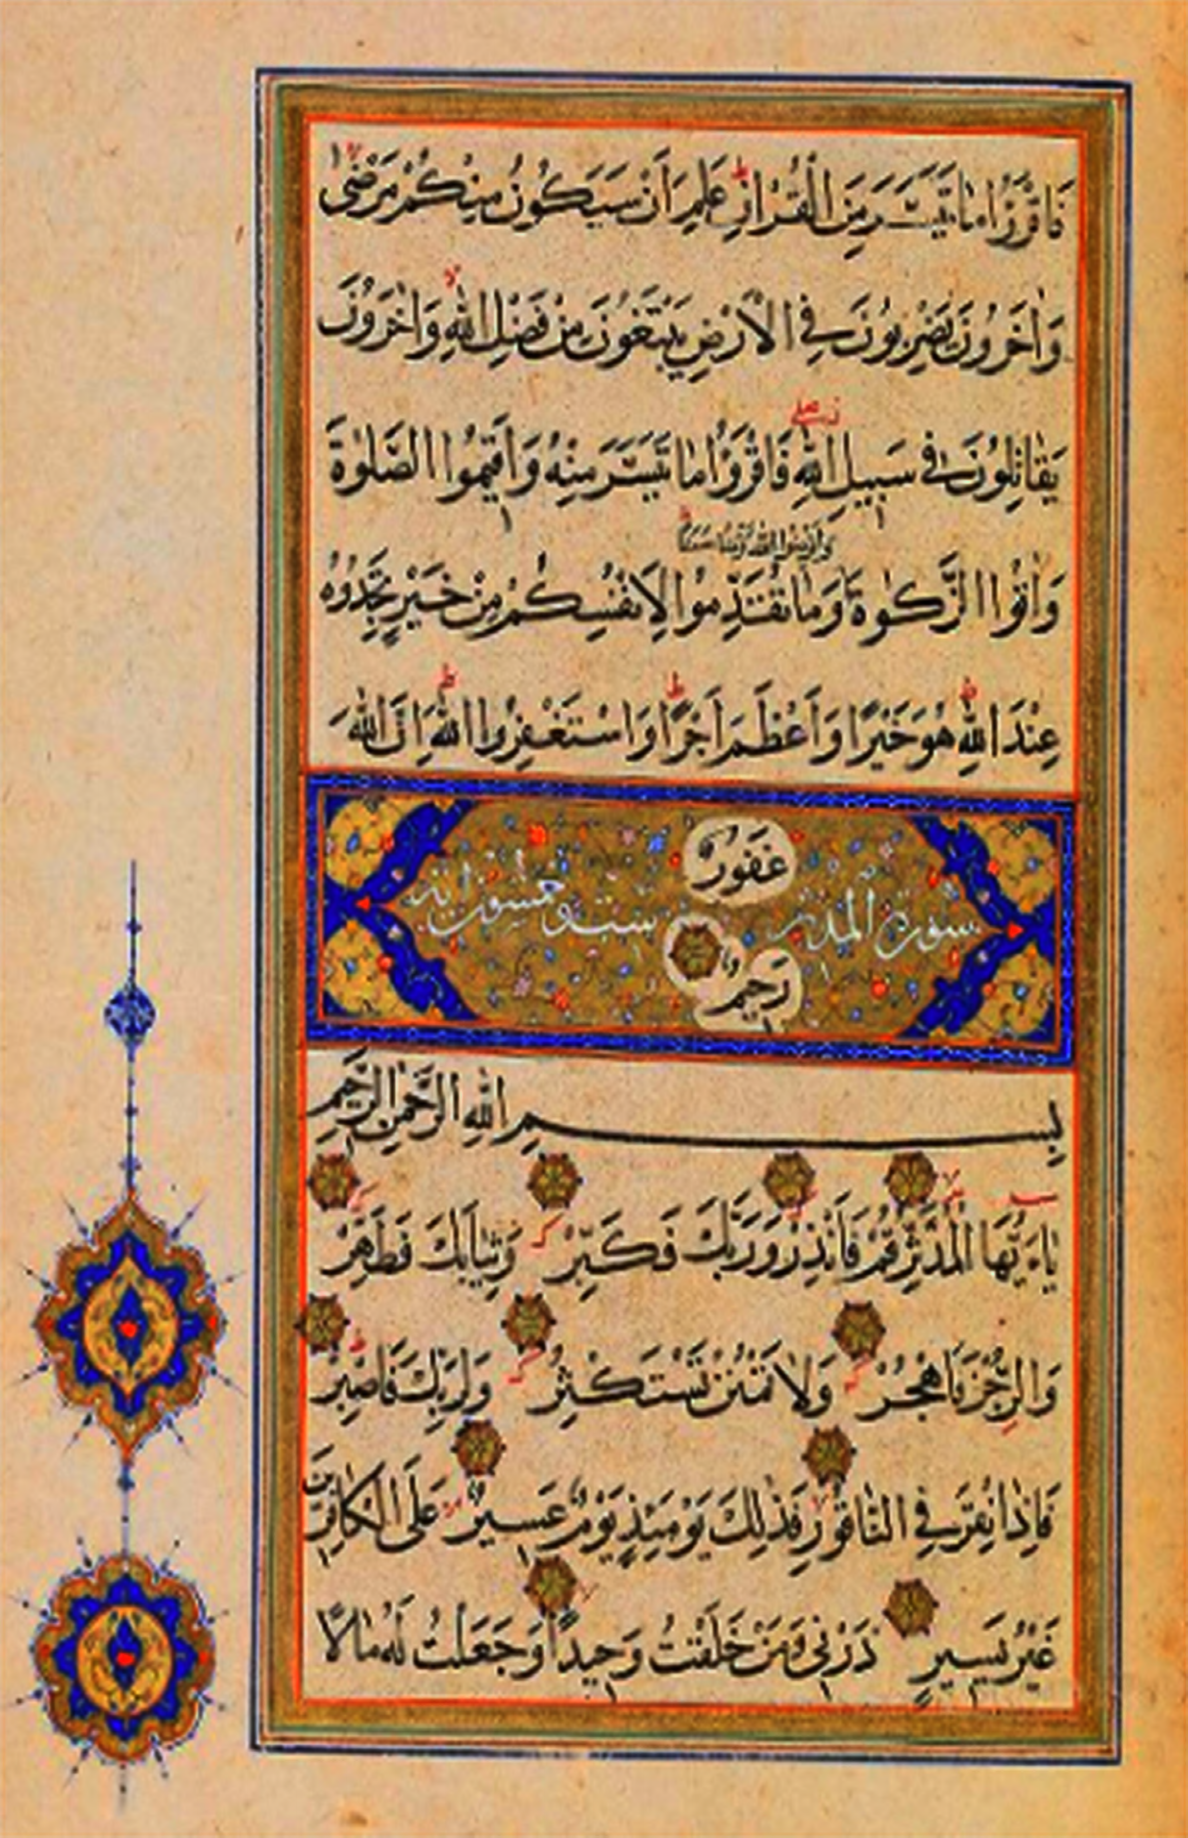 فَاقْرَؤُا مَا تَيَسَّرَ مِنَ الْقُرْاٰنِ عَلِمَ اَنْ سَيَكُونُ مِنْكُمْ مَرْضٰى
وَاٰخَرُونَ يَضْرِبُونَ فِي الْاَرْضِ يَبْتَغُونَ مِنْ فَضْلِ اللّٰهِ وَاٰخَرُونَ
يُقَاتِلُونَ فِي سَبِيلِ اللّٰهِ فَاقْرَؤُا مَا تَيَسَّرَ مِنْهُ وَاَقِيمُوا الصَّلٰوةَ
وَاَقْرِضُوا اللّٰهَ قَرْضًا حَسَنًا
وَاٰتُوا الزَّكٰوةَ وَمَا تُقَدِّمُوا لِاَنْفُسِكُمْ مِنْ خَيْرٍ تَجِدُوهُ
عِنْدَ اللّٰهِ هُوَ خَيْرًا وَاَعْظَمَ اَجْرًا وَاسْتَغْفِرُوا اللّٰهَ اِنَّ اللّٰهَ
غَفُورٌ
سورة المدثر ست وخمسون اية
رَحِيمٌ
بِسْمِ اللّٰهِ الرَّحْمٰنِ الرَّحِيمِ
يَاءَيُّهَا الْمُدَّثِّرُ قُمْ فَاَنْذِرْ وَرَبَّكَ فَكَبِّرْ وَثِيَابَكَ فَطَهِّرْ
وَالرُّجْزَ فَاهْجُرْ وَلَا تَمْنُنْ تَسْتَكْثِرُ وَلِرَبِّكَ فَاصْبِرْ
فَاِذَا نُقِرَ فِي النَّاقُورِ فَذٰلِكَ يَوْمَئِذٍ يَوْمٌ عَسِيرٌ عَلَى الْكَافِرِينَ
غَيْرُ يَسِيرٍ ذَرْنِي وَمَنْ خَلَقْتُ وَحِيدًا وَجَعَلْتُ لَهُ مَالًا